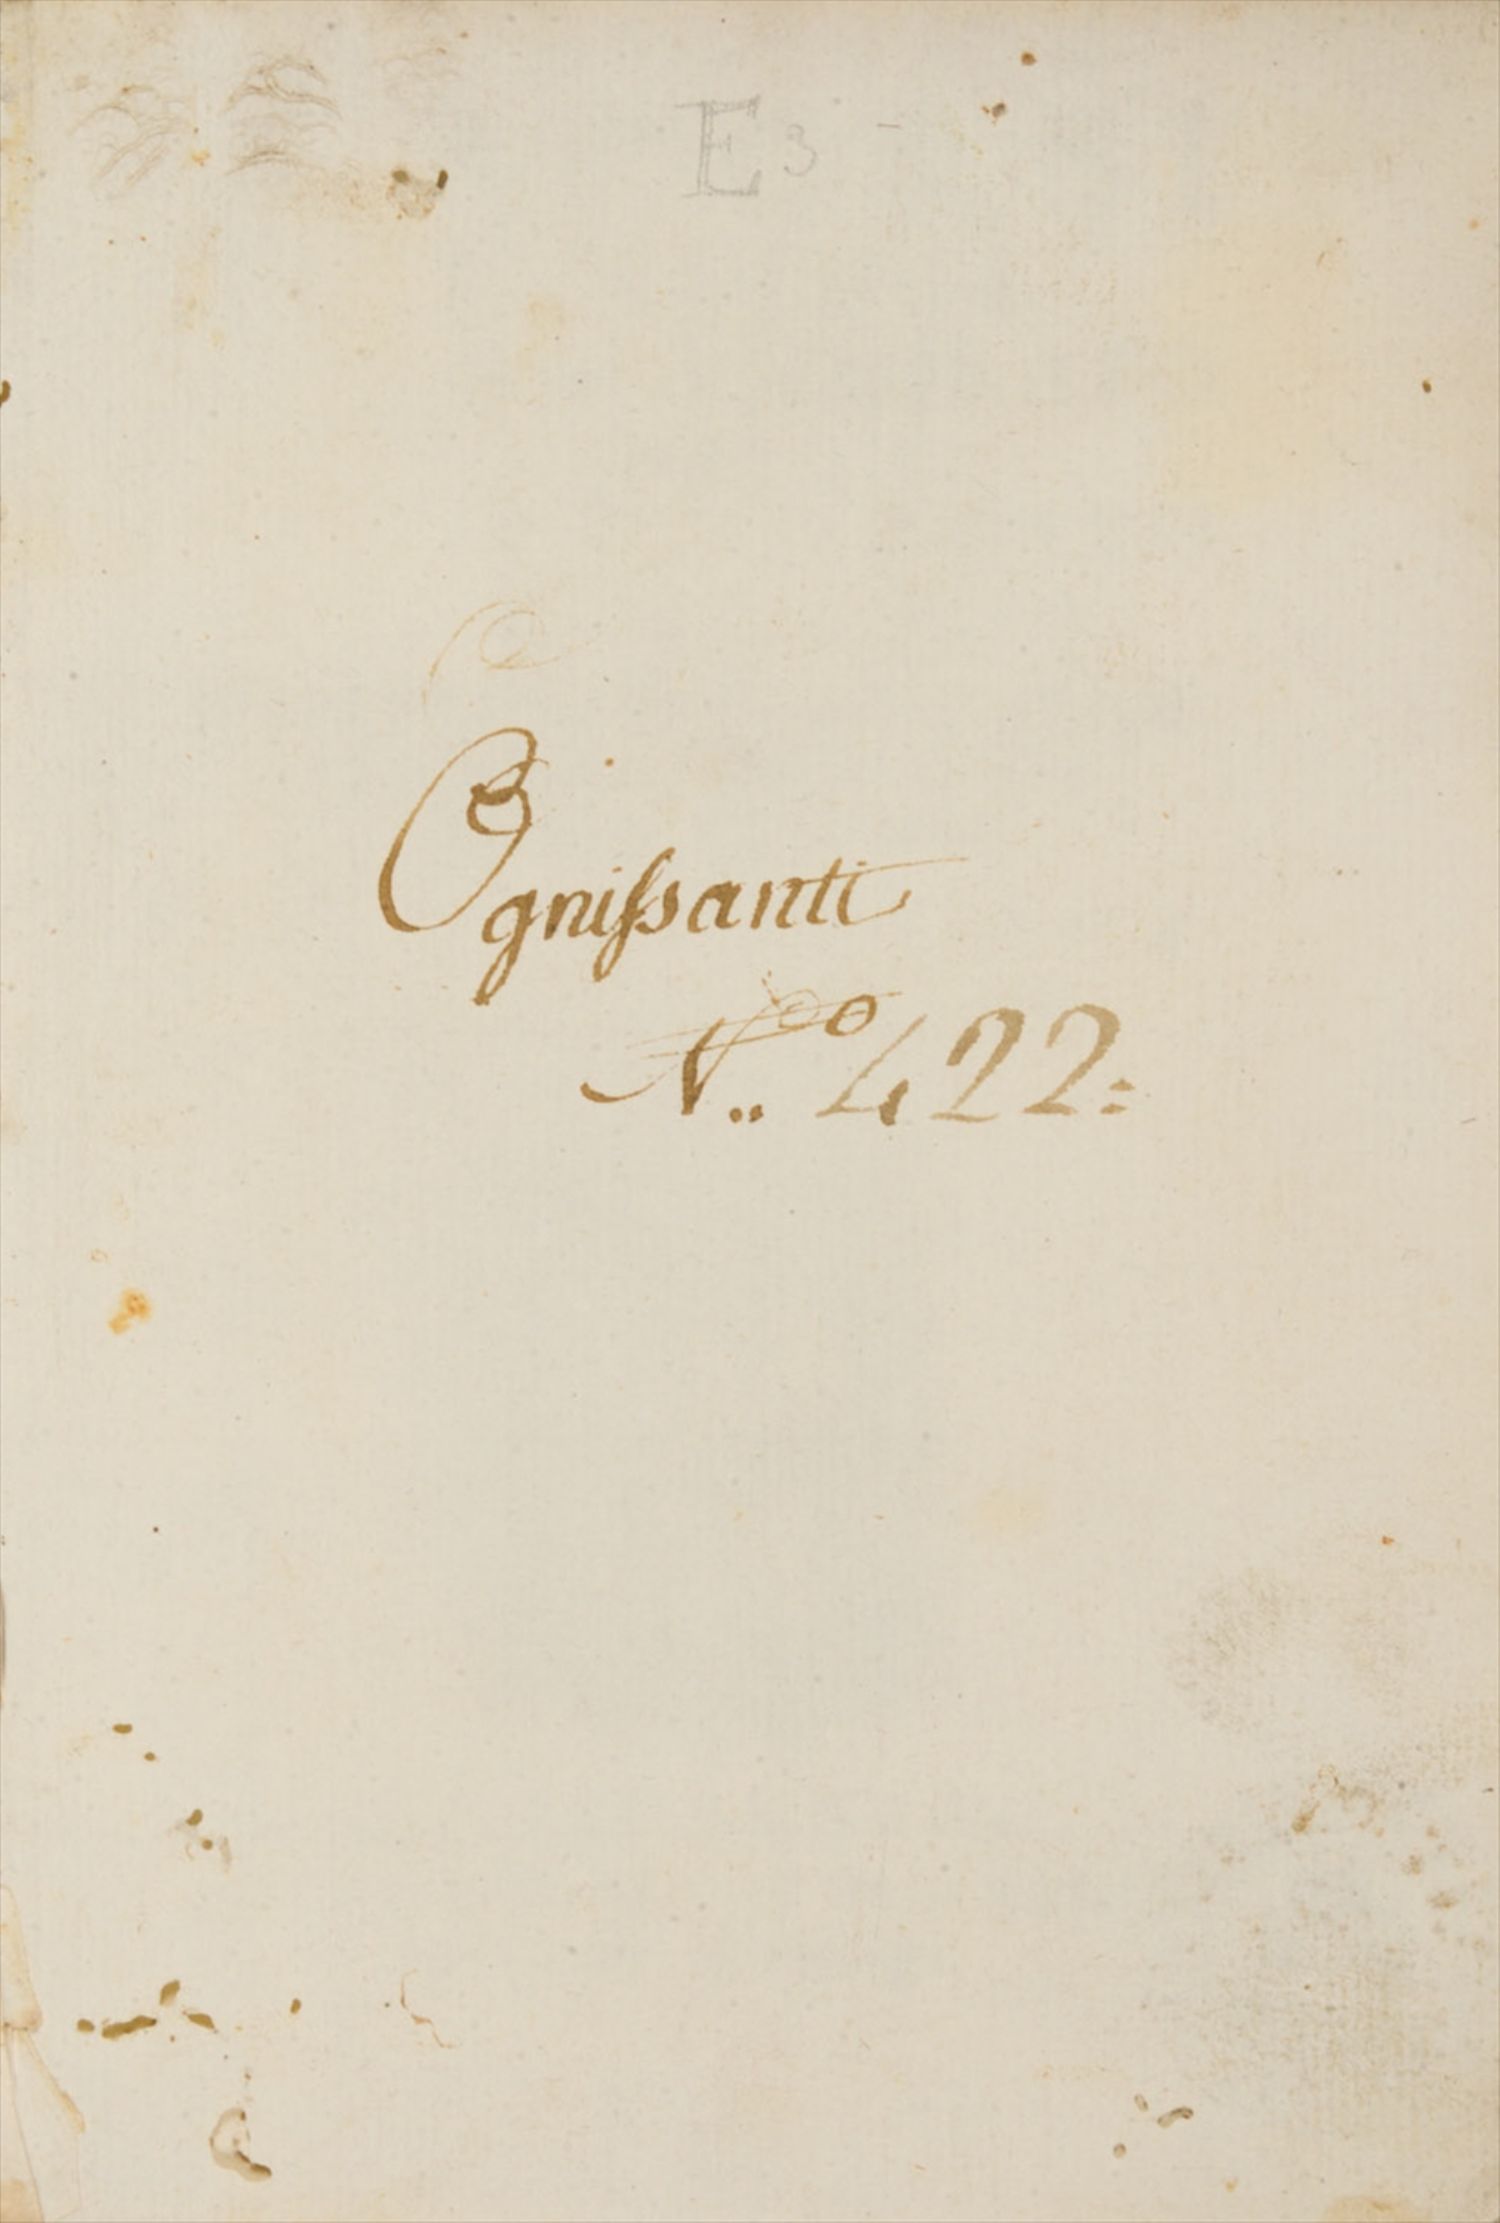 E 3
Ogniſsanti
N..º 422: